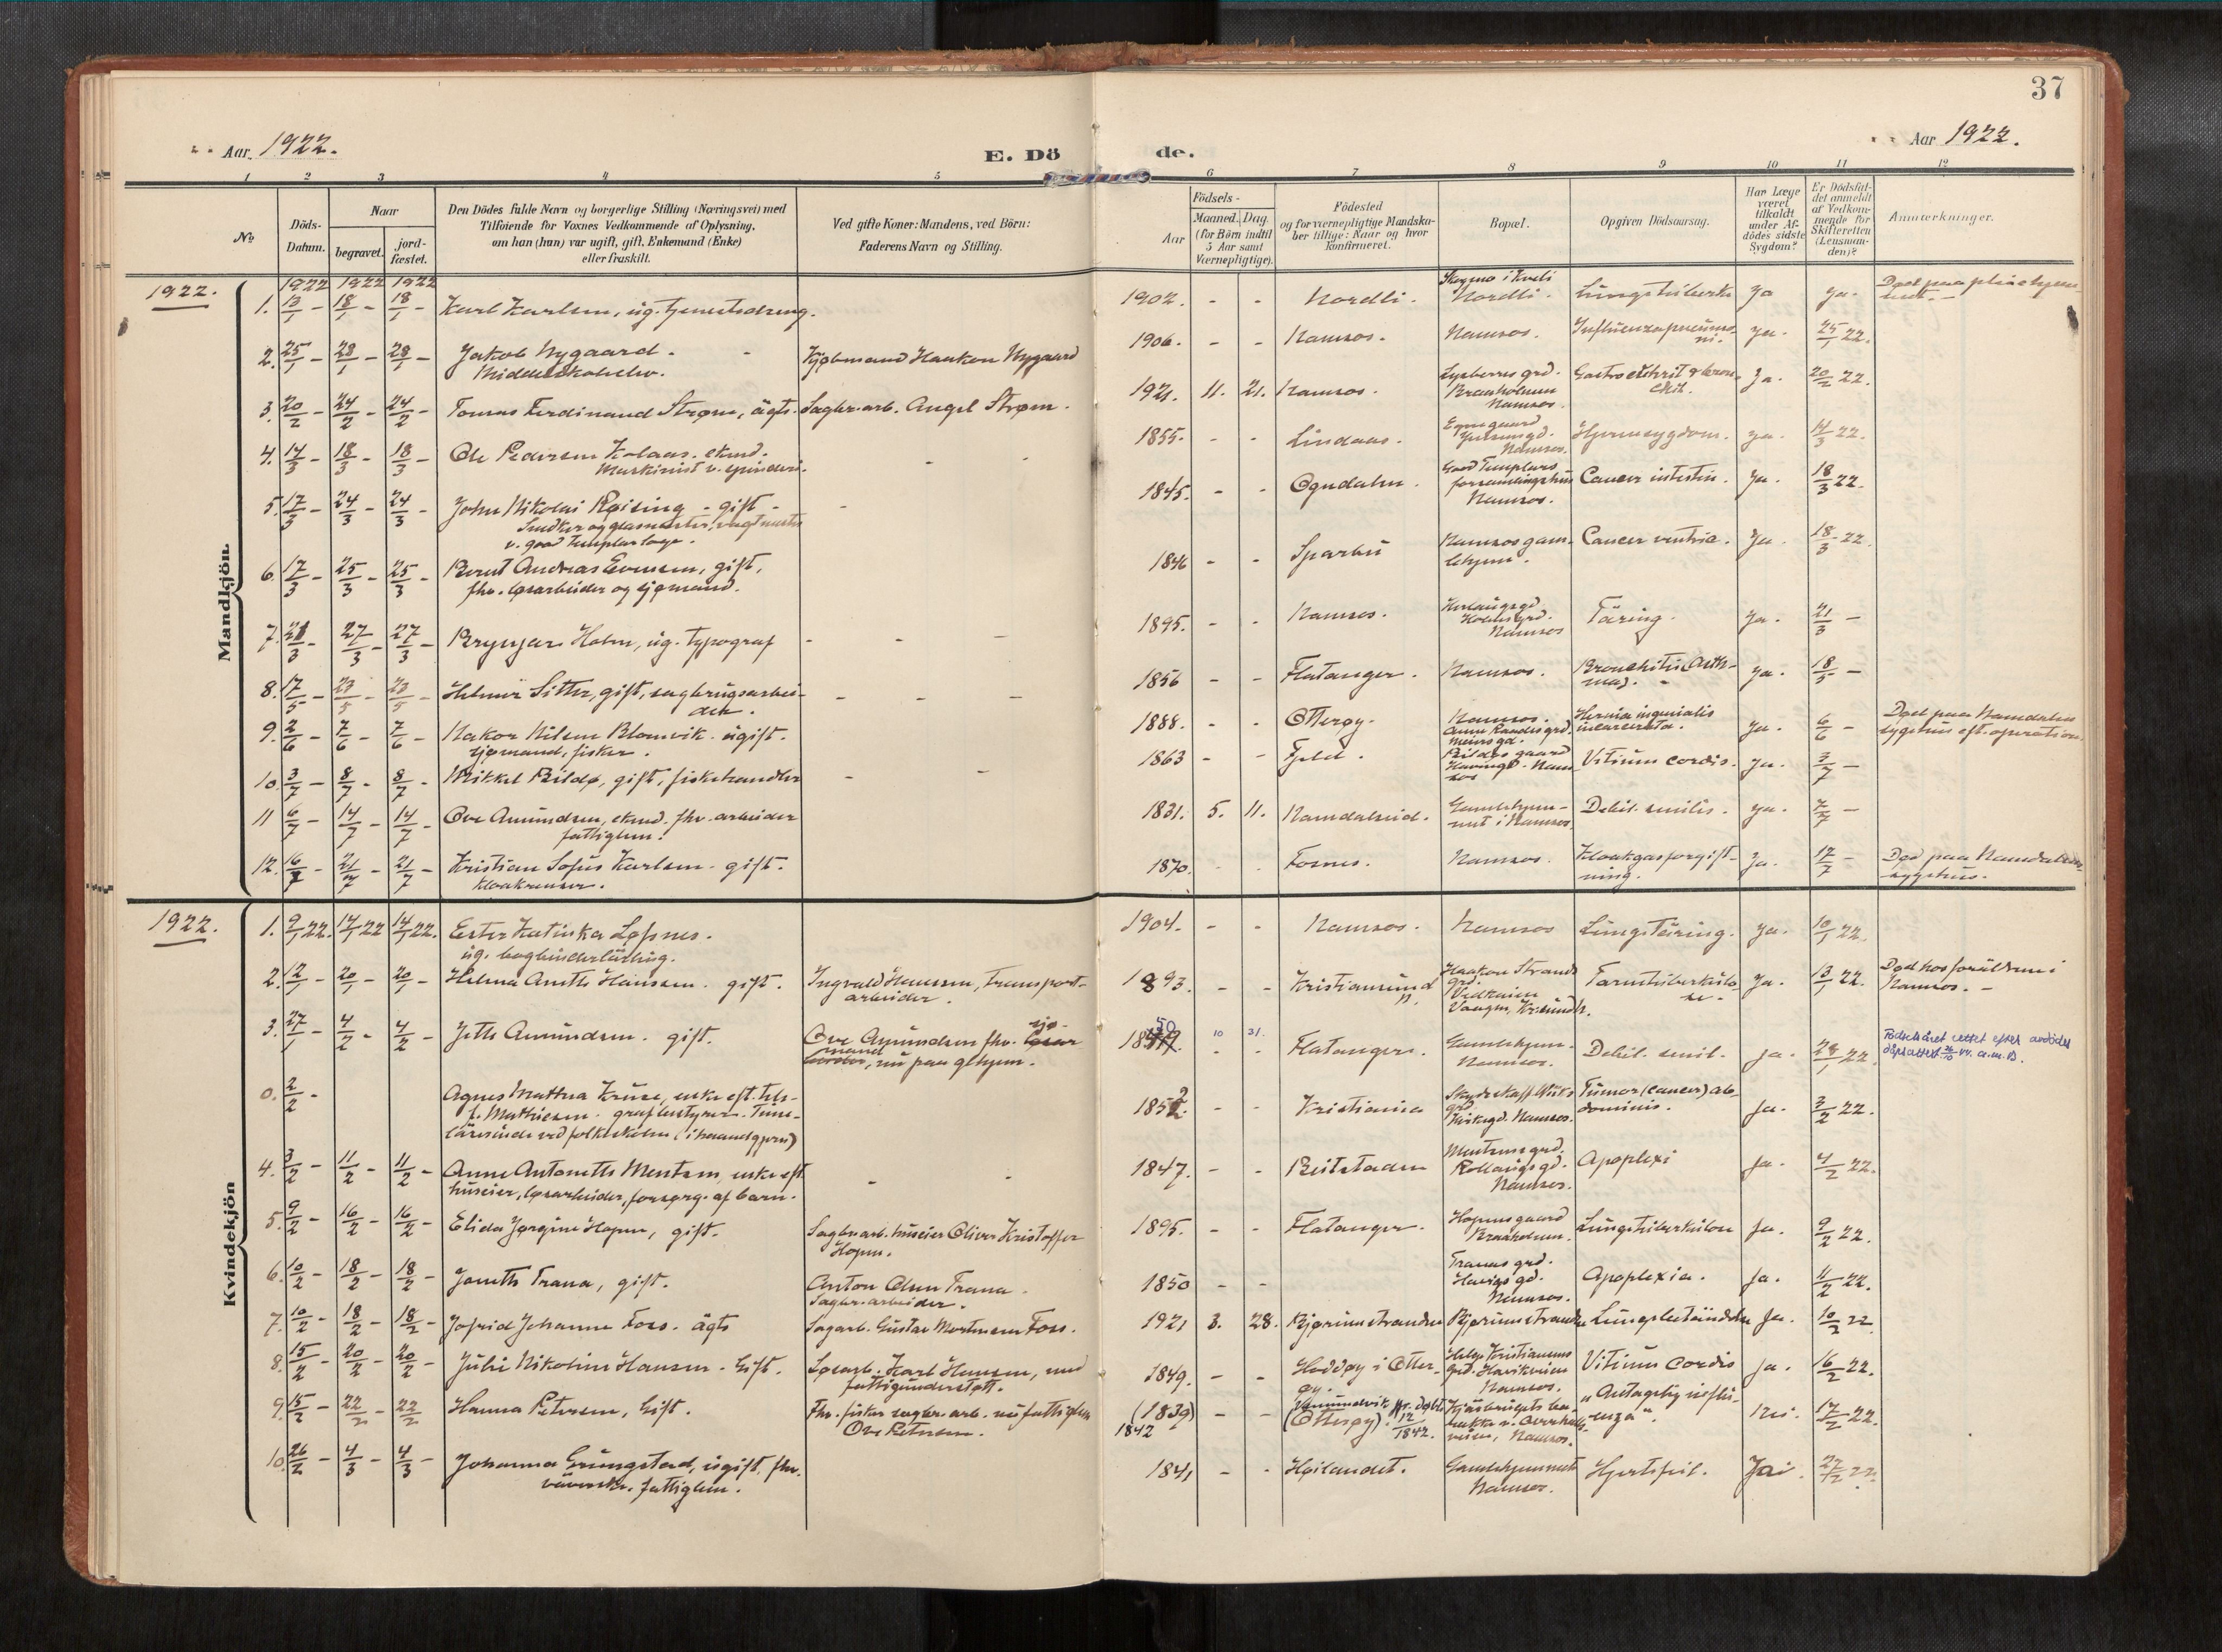 37
Aar 1922.
E. Dö
de.
Aar 1922.
1 2 3 4 5 6 7 8 9 10 11 12
№
Döds-
Datum.
Naar
begravet.
jord-
fæstet.
Den Dödes fulde Navn og borgerlige Stilling (Næringsvei) med
Tilføiende for Voxnes Vedkommende af Oplysning,
om han (hun) var ugift, gift, Enkemand (Enke)
eller fraskilt.
Ved gifte Koner: Mandens, ved Börn:
Faderens Navn og Stilling.
Födsels-
Aar
Maaned. Dag.
(for Börn indtil
5 Aar samt
Værnepligtige).
Födested
og for værnepligtige Mandska-
ber tillige: Naar og hvor
konfirmeret.
Bopæl.
Opgiven Dödsaarsag.
Har Læge
været
tilkaldt
under Af-
dödes sidste
Sygdom?
Er Dödsfal-
det anmeldt
af Vedkom-
mende for
Skifteretten
(Lensman-
den)?
Anmærkninger.
Mandkjön.
1922.
1922 1922 1922
1. 13/1 - 18/1 - 18/1 - Karl Karlsen, ug. tjenestedreng. 1902. - - Nordli. Nordli. Lungetuberku Ja ja.
2. 25/1 - 28/1 - 28/1 - Jakob Nygaard. - Kjøbmand Haakon Nygaard 1906. - - Namsos. Namsos. Influenzapneumo- ja. 25/1 22.
Middelskoleelev.
ni.
3. 20/2 - 24/2 - 24/2 - Tomas Ferdinand Strøm, ägte. Sagbr. arb. Angel Strøm. 1921. 11. 21. Namsos. Braaholmen Ja. 20/2 22.
Namsos.
4. 14/3 - 18/3 - 18/3 - Ole Pedersen Kolaas. ekmd. 1855. - - Lindaas. Hjernesygdom. ja. 14/3 22.
Maskinist v. spinderi.
Namsos.
5. 17/3 - 24/3 - 24/3 - John Nikolai Røising - gift - 1845. - - Ogndalen. Good Templars Cancer intestin. Ja. 18/3 22.
forsamlingshus
Snedker og glasmester, vagtmester
Namsos.
v. good templarloge.
6. 17/3 - 25/3 - 25/3 - Bernt Andreas Evensen, gift, 1846 - - Sparbu Namsos gam- Cancer ventric. Ja. 18/3 22.
lehjem.
fhv. løsarbeider og sjømand.
7. 21/3 - 27/3 - 27/3 - Brynjar Holm, ug. typograf - - - 1895. - - Namsos. Holms grd. Täring. Ja. 21/3 -
Namsos
8. 17/5 - 23/5 - 23/5 - Helmer Sitter, gift, sagbrugsarbei- - - - 1856 - - Flatanger. Namsos. Bronchitis (Asth- ja. 18/5 -
der.
ma).
9. 2/6 - 7/6 - 7/6 - Hakon Nilsen Blomvik - ugift. 1888. - - Otterøy. Namsos. Hernia inguinalis ja. 6/6 - Død paa Namdalens
incarcerata.
sygehus eft. operation.
sjømand, fisker.
10. 3/7 - 8/7 - 8/7 - Mikkel Reildø, gift, fiskehandler - - 1863 - - Fjeld. Vitium cordis. ja. 3/7 -
11 6/7 - 14/7 - 14/7 - Ove Amundsen, ekmd. fhv. arbeider 1831. 5. 11. Namdalseid. Gamlehjem- Debil. senilis. ja. 7/7 -
met i Namsos.
fattiglem.
12. 16/7 - 21/7 - 21/7 - Kristian Sofus Karlsen - gift. 1870. - - Fosnes. Namsos. Kloakgasforgift- Ja. 17/7 - Død paa Namdalens
ning.
sygehus.
Kloakrenser.
Kvindekjön
1922.
1. 9/1 22. 14/1 22 14/1 22. Ester Katinka Løfsnes. 1904. - - Namsos. Namsos Lungetäring. ja. 10/1 22.
ug. bogbinderlärling.
2. 12/1 - 20/1 - 20/1 - Helma Anette Hanssen. gift. Ingvald Hanssen, Transport- 1893. - - Kristiansund Haakon Strands Tarmtuberkulo Ja. 13/1 22. Død hos forældrene i
arbeider.
N.
grd.
se.
Namsos. -
3. 27/1 - 4/2 - 4/2 - Jette Amundsen. gift. Ove Amundsen fhv. sjø- 1850 10 31. Flatanger. Gamlehjem. Debil. senil. ja. 28/1 22. Fødselsåret rettet efter avdødes
mand, nu paa glhjem.
Namsos.
0. 2/2 - Agnes Mathea Kruse, enke eft. tele- 1852. - - Kristiania Tumor (cancer) ab- Ja. 3/2 22.
f. Mathiesen. grafbestyrer. Time-
Kirkegd. Namsos.
dominis.
lärerinde ved folkeskolen (i haandgjern)
4. 3/2 - 11/2 - 11/2 - Anne Antonette Mentsen, enke eft. - - 1847. - - Beitstaden Mentsens grd. Apoplexi Ja. - 4/2 22.
Namsos.
huseier, løsarbeider, forsørg. af barn.
5. 9/2 - 16/2 - 16/2 - Elida Jørgine Hopen, gift. Sagbr. arb. huseier Oliver Kristoffer 1895. - - Flatanger. Hopens gaard Lungetuberkulose Ja. 9/2 22.
Hopen.
Braaholmen.
6. 10/2 - 18/2 - 18/2 - Jonette Trana, gift. Anton Olsen Trana 1850 - - Tranas grd. Apoplexia. Ja. 11/2 22.
Sagbr. arbeider.
Namsos.
7. 10/2 - 18/2 - 18/2 - Jofrid Johanne Foss. ägte Sagarb. Gustav Mortensen Foss. 1921 3. 28. Bjørumstranden Bjørumstranden Lungebetändelse Ja. 10/2 22
8. 15/2 - 20/2 - 20/2 - Julie Nikoline Hansen. Gift. Løsarb. Karl Hansen, med 1849. - - Hoddøy i Otter- Vitium Cordis Ja. 16/2 22.
fattigunderstøtt.
øy.
Namsos.
9. 15/2 - 22/2 - 22/2 Hanna Petersen, Gift. Fhv. fisker sagbr. arb. nu fattiglem (1839) - - "Antagelig influ-
Ove Petersen.
1842
(Otterøy). 12/1842.
Namsos.
enza". Nei. 17/2 22.
10. 26/2 - 4/3 - 4/3 - Johanna Grungstad, ugift, fhv. 1841 - - Høilandet. Gamlehjemmet Hjertefeil. Ja. 27/2 22.
Namsos.
väverske. fattiglem.